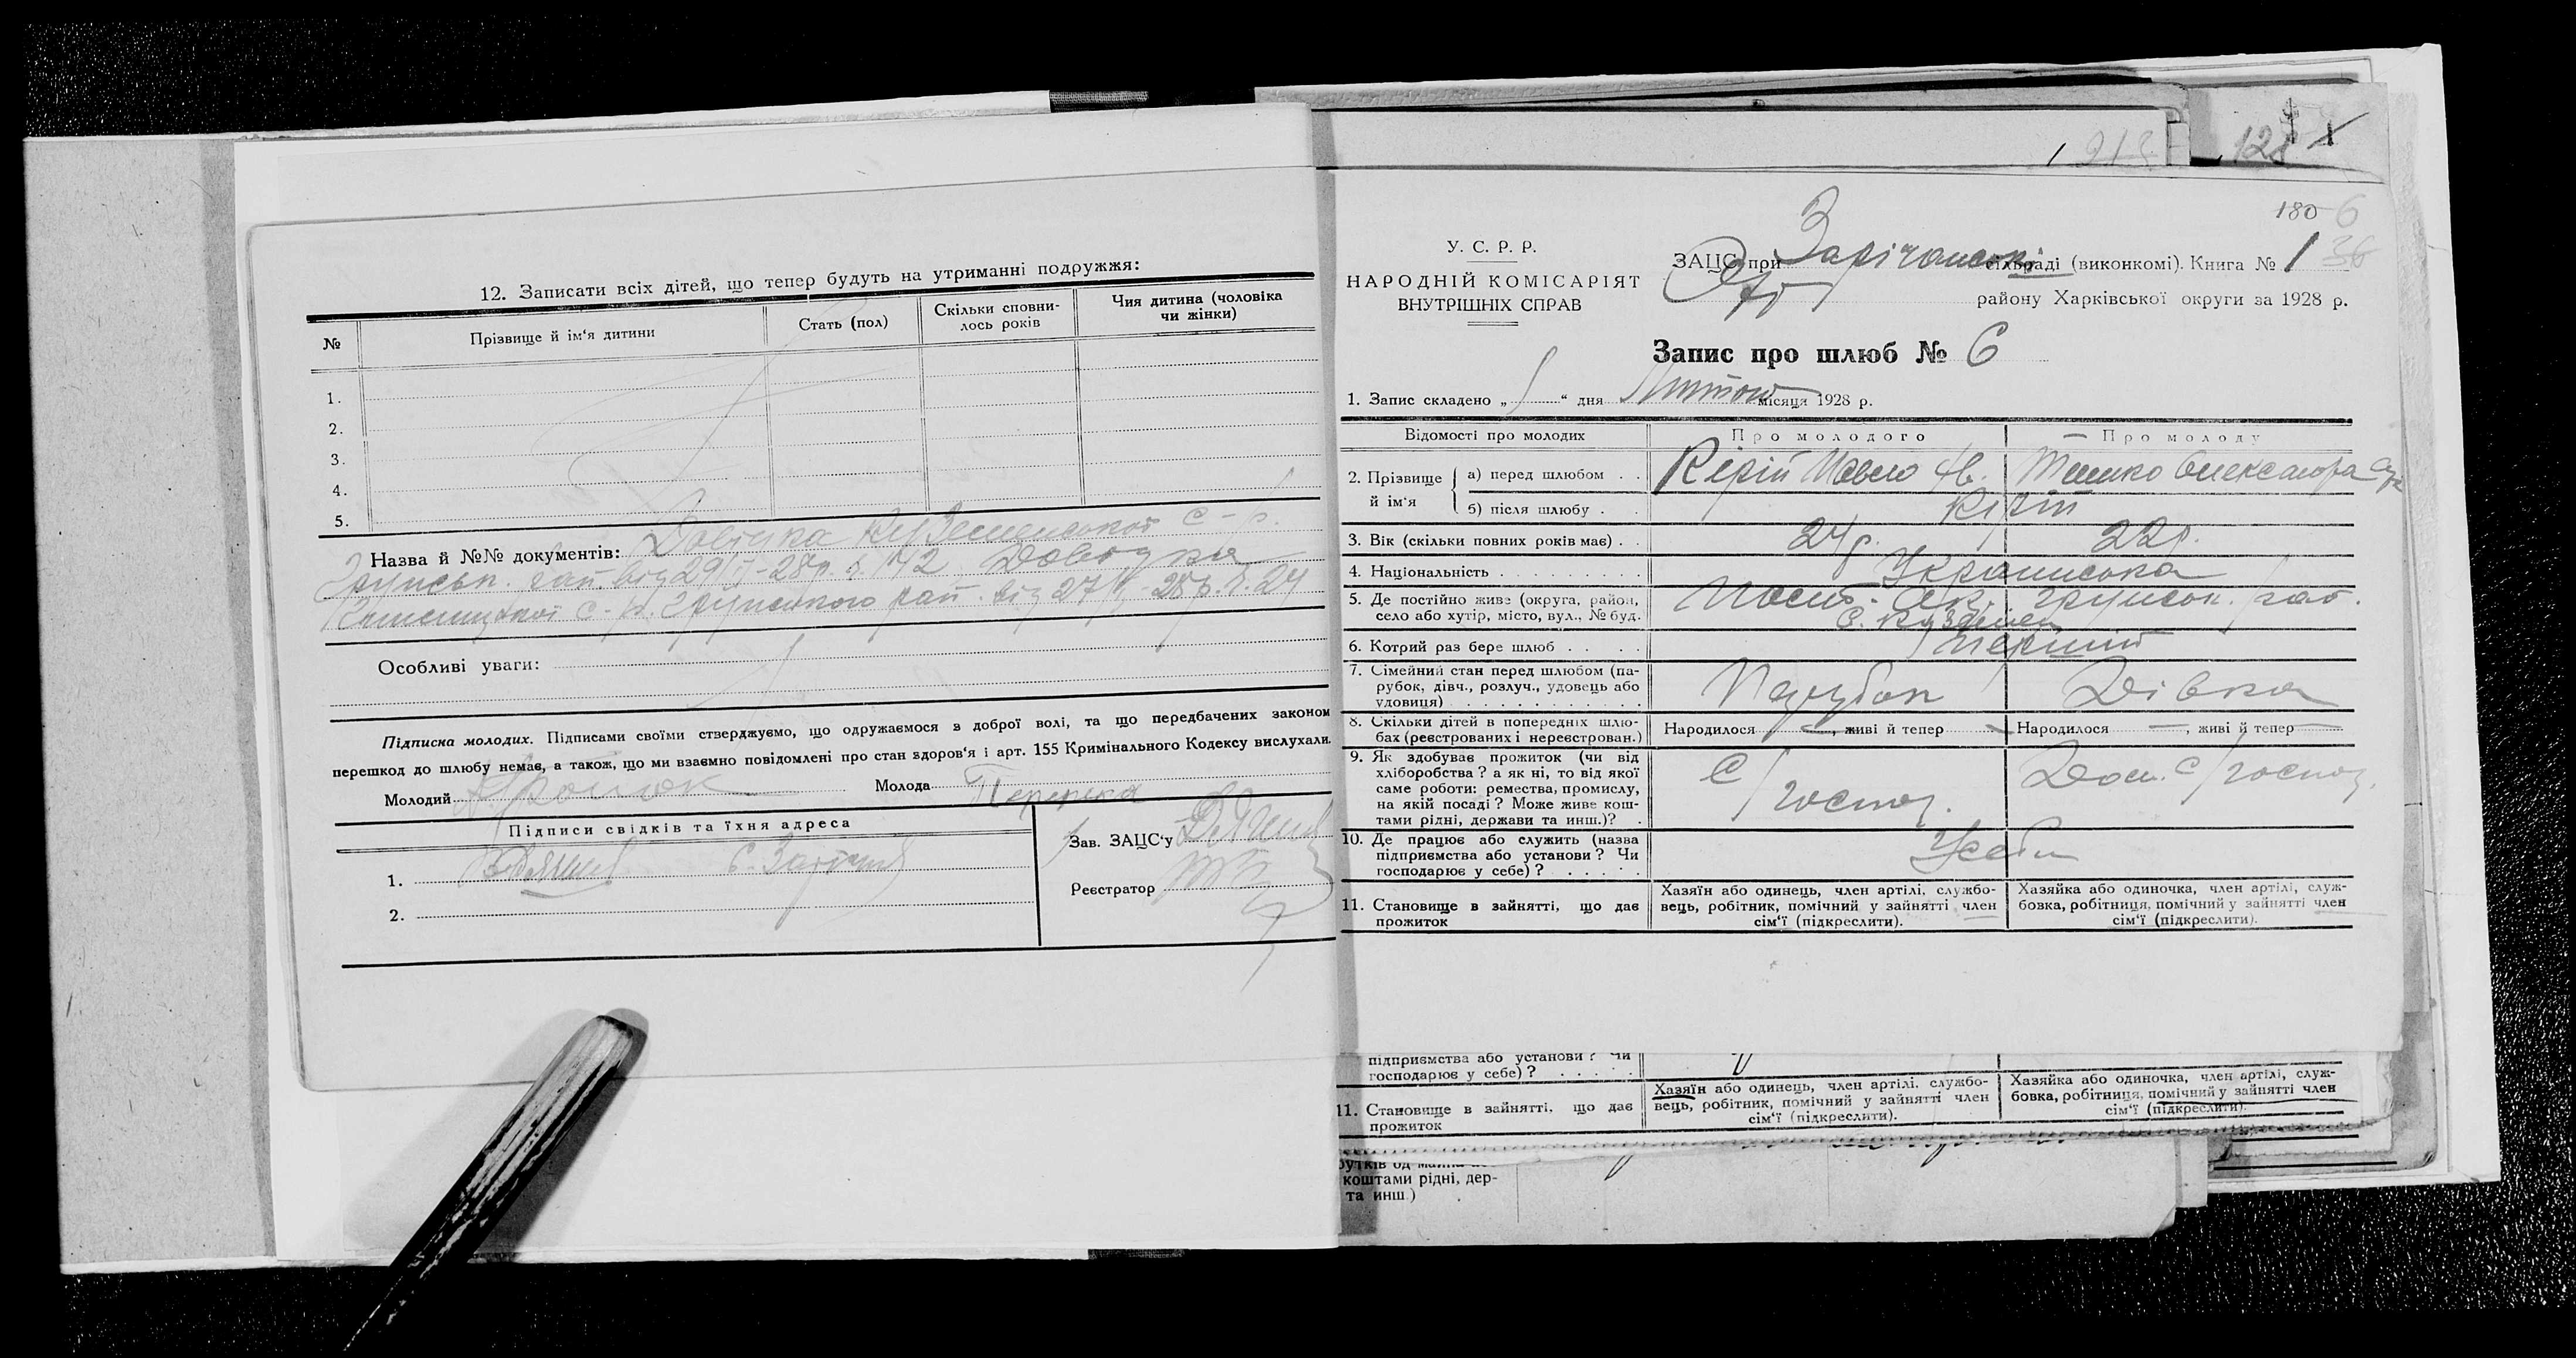 12. Записати всіх дітей, що тепер будуть на утриманні подружжя:
№ Прізвище й ім'я дитини Стать (пол) Скільки сповни-лось років Чия дитина (чоловіка чи жінки)
1.
2.
3.
4.
5.
Назва й №№ документів: Довідка с-р.
від 29/I-28р. № 172 Довідка
с-р. Грунського рай. від 27/I-28р. № 24
Особливі уваги:
Підписка молодих. Підписами своїми стверджуємо, що одружаємося з доброї волі, та що передбачених законом
перешкод до шлюбу немає, а також, що ми взаємно повідомлені про стан здоров'я і арт. 155 Кримінального Кодексу вислухали.
Молодий Молода
Підписи свідків та їхня адреса
Зав. ЗАЦС'у
1.
Реєстратор
2.
213
128
180 6
У. С. Р. Р.
НАРОДНІЙ КОМІСАРІЯТ
ВНУТРІШНІХ СПРАВ
ЗАЦС при Зарічанські сільраді (виконкомі). Книга № 1 36
району Харківської округи за 1928 р.
Запис про шлюб № 6
1. Запис складено „ “ дня Лютого місяця 1928 р.
Відомості про молодих Про молодого Про молоду
2. Прізвище й ім'я
а) перед шлюбом . . Кірій Павло Олександра
б) після шлюбу . Кірій
3. Вік (скільки повних років має) . . 24 р. 22 р.
4. Національність . . . . . . . . . Українська
5. Де постійно живе (округа, район,
село або хутір, місто, вул., № буд. Грунськ. рай.
с.
6. Котрий раз бере шлюб . . . . Перший
7. Сімейний стан перед шлюбом (па-
рубок, дівч., розлуч., удовець або
удовиця) . . . . . . . . . . Парубок Дівка
8. Скільки дітей в попередніх шлю-
бах (реєстрованих і нереєстрован.) Народилося —, живі й тепер — Народилося —, живі й тепер —
9. Як здобуває прожиток (чи від
хліборобства? а як ні, то від якої
саме роботи: ремества, промислу,
на якій посаді? Може живе кош-
тами рідні, держави та инш.)? С/господ. Дом. с/господ.
10. Де працює або служить (назва
підприємства або установи? Чи
господарює у себе)? . . . . . У себе
11. Становище в зайнятті, що дає
прожиток
Хазяїн або одинець, член артілі, службо-
вець, робітник, помічний у зайнятті член
сім'ї (підкреслити).
Хазяйка або одиночка, член артілі, служ-
бовка, робітниця, помічний у зайнятті член
сім'ї (підкреслити).
підприємства або установи? Чи
господарює у себе)? . . . . .
11. Становище в зайнятті, що дає
прожиток
Хазяїн або одинець, член артілі, службо-
вець, робітник, помічний у зайнятті член
сім'ї (підкреслити).
Хазяйка або одиночка, член артілі, служ-
бовка, робітниця, помічний у зайнятті член
сім'ї (підкреслити).
коштами рідні, дер-
та инш.)